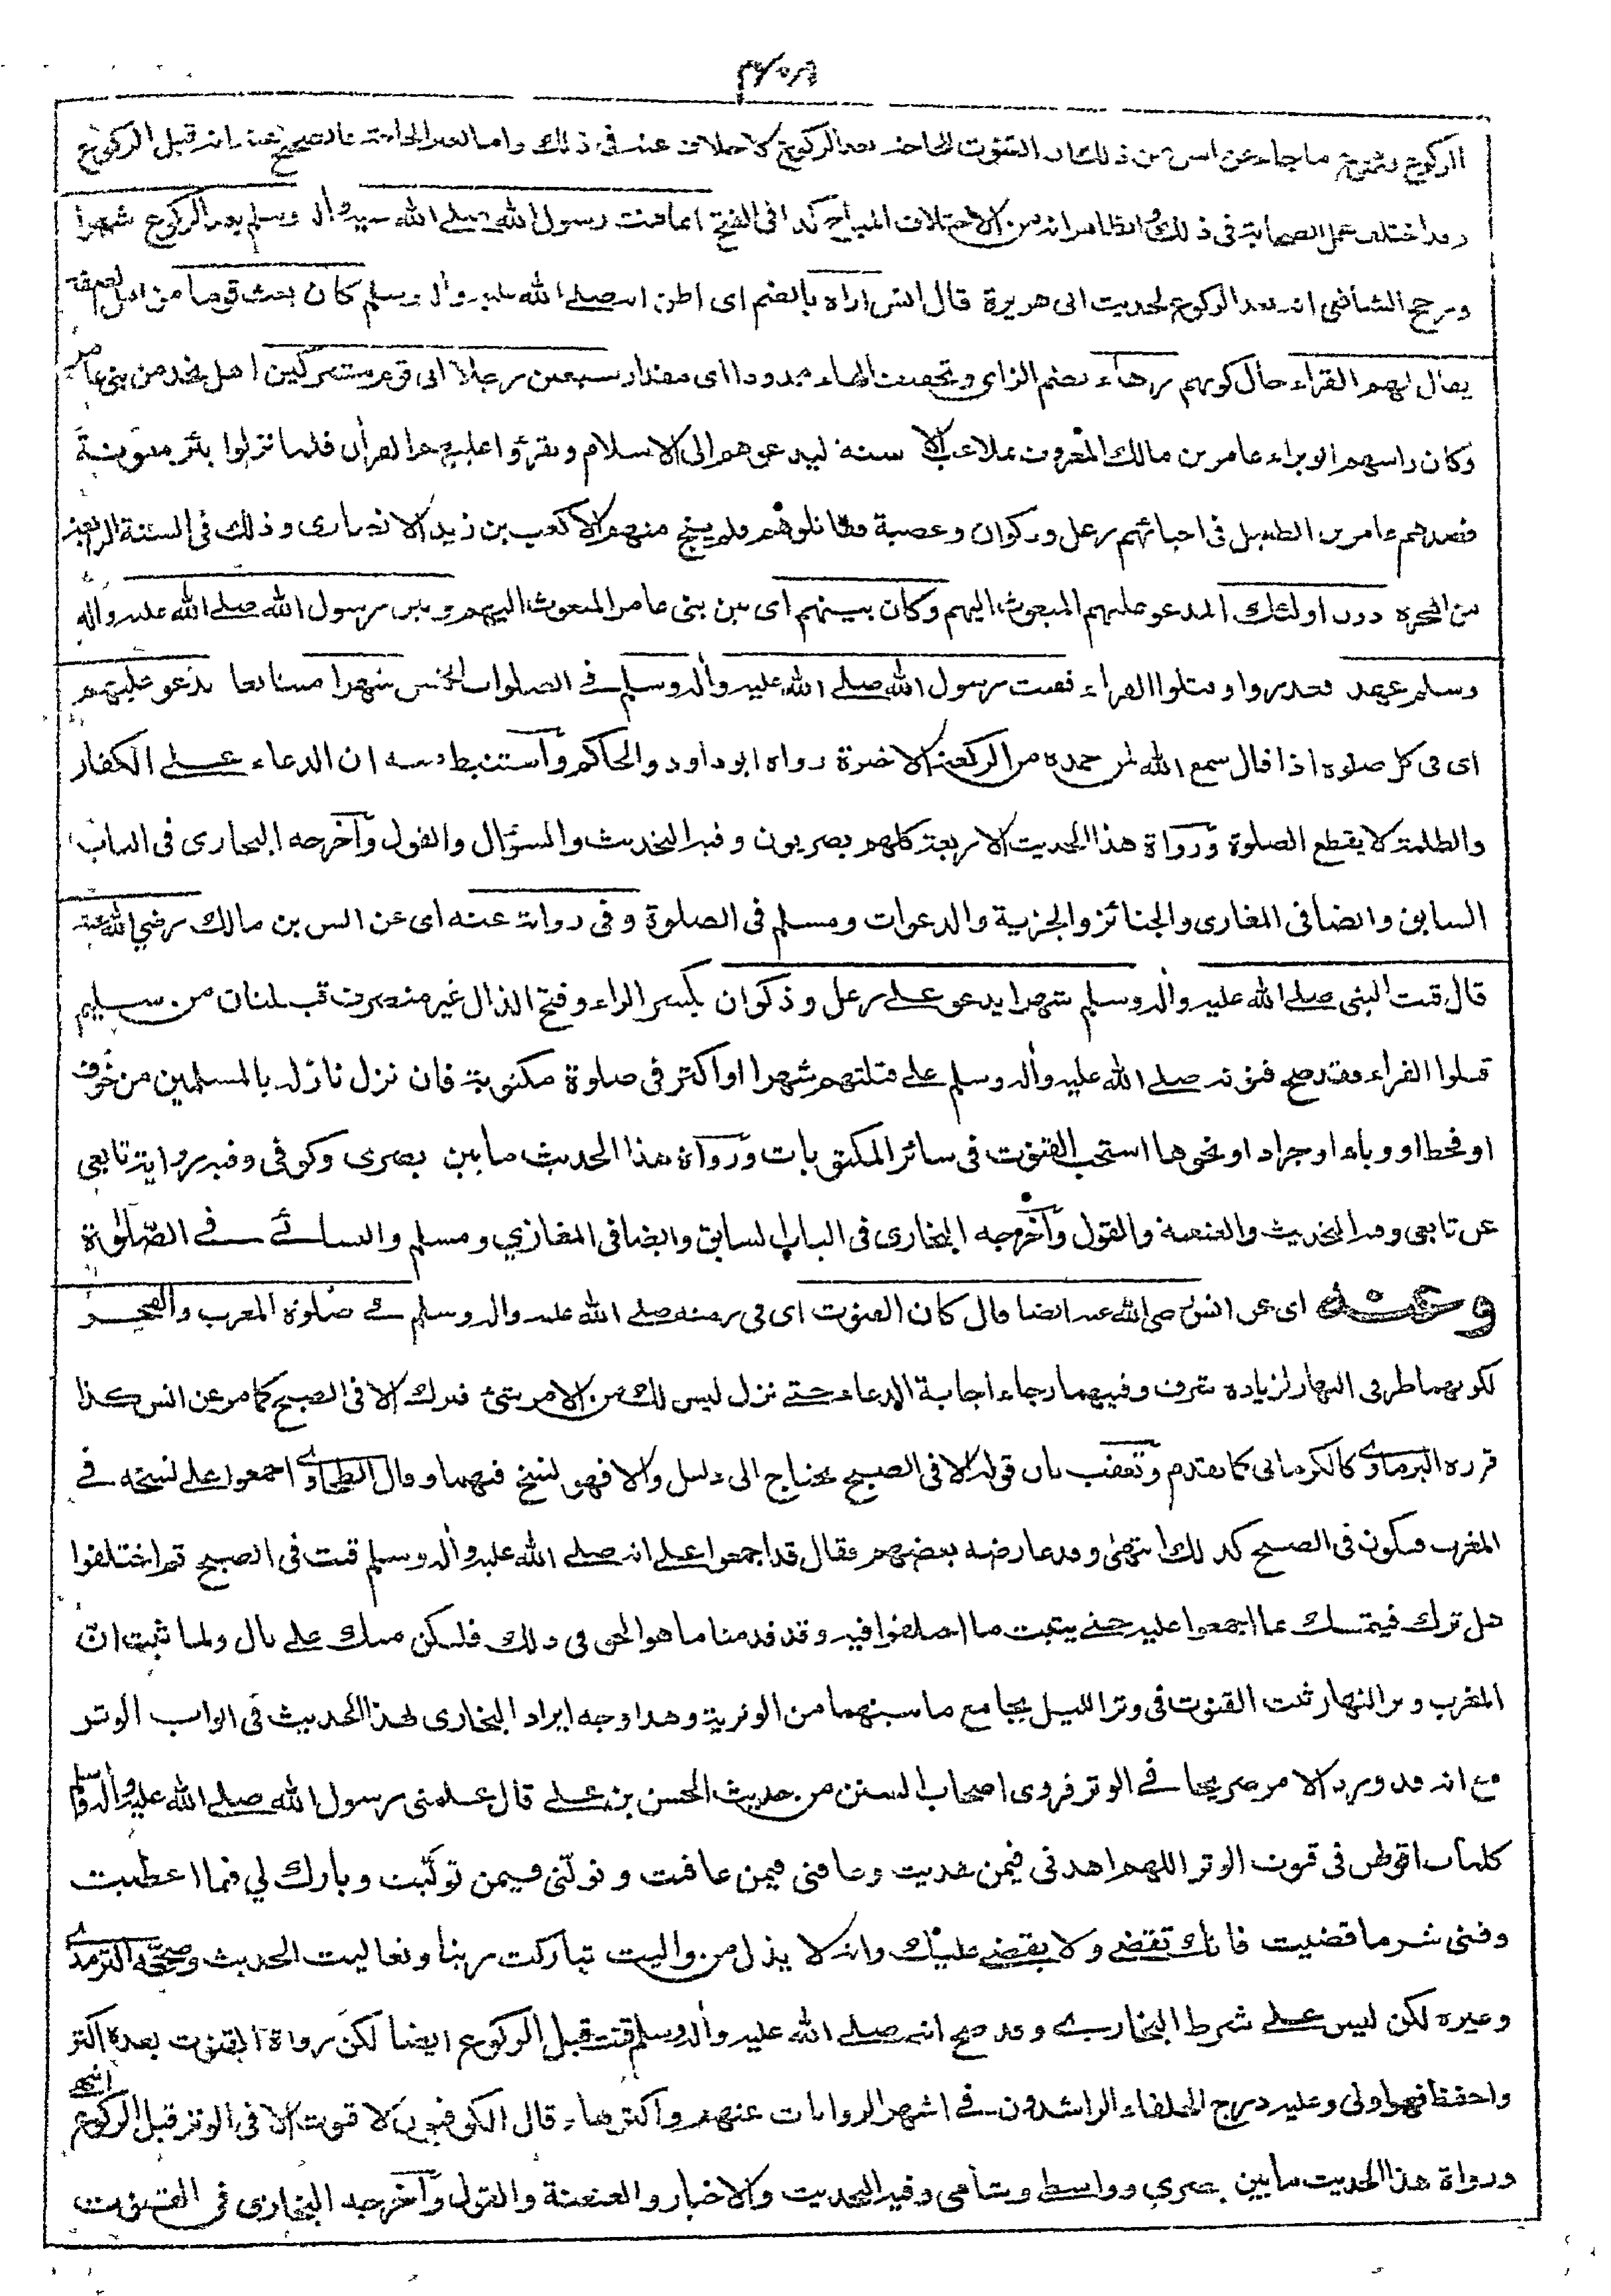 الركوع ومجموع ما جاء عن انس من ذلك ان القنوت للحاجة بعد الركوع لا خلاف عنه في ذلك واما لغير الحاجة فالصحيح عنه انه قبل الركوع
وقد اختلف عمل الصحابة في ذلك والظاهر انه من الاختلاف المباح كذا في الفتح انما قنت رسول الله صلى الله عليه وآله وسلم بعد الركوع شهرا
ورجح الشافعي انه بعد الركوع لحديث ابي هريرة قال انس اراه بالضم اي اظن انه صلى الله عليه وآله وسلم كان بعث قوما من اهل الصفة
يقال لهم القراء حال كونهم زهاء بضم الزاي وتخفيف الهاء ممدودا اي مقدار سبعين رجلا الى قوم مشركين اهل نجد من بني عامر
وكان راسهم ابو براء عامر بن مالك المعروف بملاعب الاسنة ليدعوهم الى الاسلام ويقرؤا عليهم القرأن فلما نزلوا بئر معونة
قصدهم عامر بن الطفيل في احيائهم رعل وذكوان وعصية فقاتلوهم فلم ينج منهم الا كعب بن زيد الانصاري وذلك في السنة الرابعة
من الهجرة دون اولئك المدعو عليهم المبعوث اليهم وكان بينهم اي بين بني عامر المبعوث اليهم وبين رسول الله صلى الله عليه وآله
وسلم عهد فغدروا وقتلوا القراء فقنت رسول الله صلى الله عليه وآله وسلم في الصلوات الخمس شهرا متتابعا يدعو عليهم
اي في كل صلوة اذا قال سمع الله لمن حمده من الركعة الاخرة رواه ابو داود والحاكم وآستنبط منه ان الدعاء على الكفار
والظلمة لا يقطع الصلوة ورواة هذا الحديث الاربعة كلهم بصريون وفيه التحديث والسؤال والقول وآخرجه البخاري في الباب
السابق وايضا في المغازي والجنائز والجزية والدعوات ومسلم في الصلوة وفي رواية عنه اي عن انس بن مالك رضي الله عنه
قال قنت النبي صلى الله عليه وآله وسلم شهرا يدعو على رعل وذكوان بكسر الراء وفتح الذال غير منصرف قبيلتان من سليم
قتلوا القراء فقد صح قنوته صلى الله عليه وآله وسلم على قتلتهم شهرا او اكثر في صلوة مكتوبة فان نزل نازلة بالمسلمين من خوف
او قحط او وباء او جراد او نحوها استحب القنوت في سائر المكتوبات ورواة هذا الحديث ما بين بصري وكوفي وفيه رواية تابعي
عن تابعي وفيه التحديث والعنعنة والقول وآخرجه البخاري في الباب السابق وايضا في المغازي ومسلم والنسائي في الصّلوٰة
وعنه اي عن انس رضي الله عنه ايضا قال كان القنوت اي في زمنه صلى الله عليه وآله وسلم في صلوة المغرب والفجر
لكونهما طرفي النهار لزيادة شرف وقتيهما رجاء اجابة الدعاء حتى نزل ليس لك من الامر شئ فترك الا في الصبح كما مر عن انس كذا
قرره البرماوي كالكرماني كما تقدم وتعقب بان قوله الا في الصبح يحتاج الى دليل والا فهو نسخ فيهما وقال الطحاوي اجمعوا على نسخه في
المغرب فيكون في الصبح كذلك انتهى وقد عارضه بعضهم فقال قد اجمعوا على انه صلى الله عليه وآله وسلم قنت في الصبح ثم اختلفوا
هل ترك فيتمسك بما اجمعوا عليه حتى يثبت ما اختلفوا فيه وقد قدمنا ما هو الحق في ذلك فليكن منك على بال ولما ثبت ان
المغرب وتر النهار ثبت القنوت في وتر الليل بجامع ما بينهما من الوترية وهذا وجه ايراد البخاري لهذا الحديث في ابواب الوتر
مع انه قد ورد الامر صريحا في الوتر فروى اصحاب السنن من حديث الحسن بن علي قال علمني رسول الله صلى الله عليه وآله وسلم
كلمات اقولهن في قنوت الوتر اللهم اهدني فيمن هديت وعافني فيمن عافيت وتولّني فيمن تولّيت وبارك لي فيما اعطيت
وقني شر ما قضيت فانك تقضي ولا يقضى عليك وانه لا يذل من واليت تباركت ربنا وتعاليت الحديث وصحّحه الترمذي
وغيره لكن ليس على شرط البخاري وقد صح انه صلى الله عليه وآله وسلم قنت قبل الركوع ايضا لكن رواة القنوت بعده اكثر
واحفظ فهو اولى وعليه درج الخلفاء الراشدون في اشهر الروايات عنهم واكثرها وقال الكوفيون لا قنوت الا في الوتر قبل الركوع انتهى
ورواة هذا الحديث ما بين بصري وواسطي وشامي وفيه التحديث والاخبار والعنعنة والقول وآخرجه البخاري في القنوت